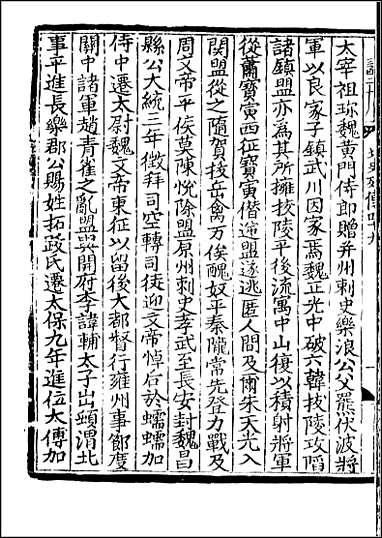 太宰祖珍魏黃門侍郎贈并州刺史樂浪公父羆伏波將
軍以良家子鎮武川因家焉魏正光中破六韓拔陵攻陷
諸鎮盟亦為其所擁拔陵平後流寓中山復以積射將軍
從蕭寶寅西征寶寅僭逆盟遂逃匿人間及爾朱天光入
關盟從之隨賀拔岳禽万俟醜奴平秦隴常先登力戰及
周文帝平侯莫陳悅除盟原州刺史孝武至長安封魏昌
縣公大統三年徵拜司空轉司徒迎文帝悼后於蠕蠕加
侍中遷太尉魏文帝東征以留後大都督行雍州事節度
關中諸軍趙青雀之亂盟與開府李諱輔太子出頓渭北
事平進長樂郡公賜姓拓政氏遷太保九年進位太傅加